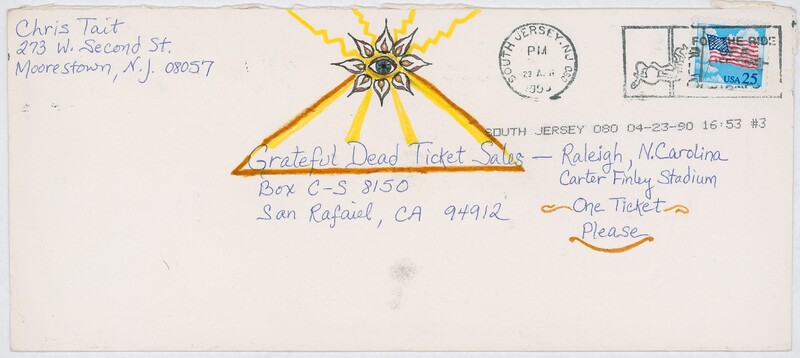 Chris Tait
273 W. Second St.
Moorestown, N.J. 08057
SOUTH JERSEY, NJ 080
PM
23 APR
1990
FOR THE RIDE
USA 25
SOUTH JERSEY 080 04-23-90 16:53 #3
Grateful Dead Ticket Sales — Raleigh, N.Carolina
Box C-S 8150
Carter Finley Stadium
San Rafaiel, CA 94912
One Ticket
Please